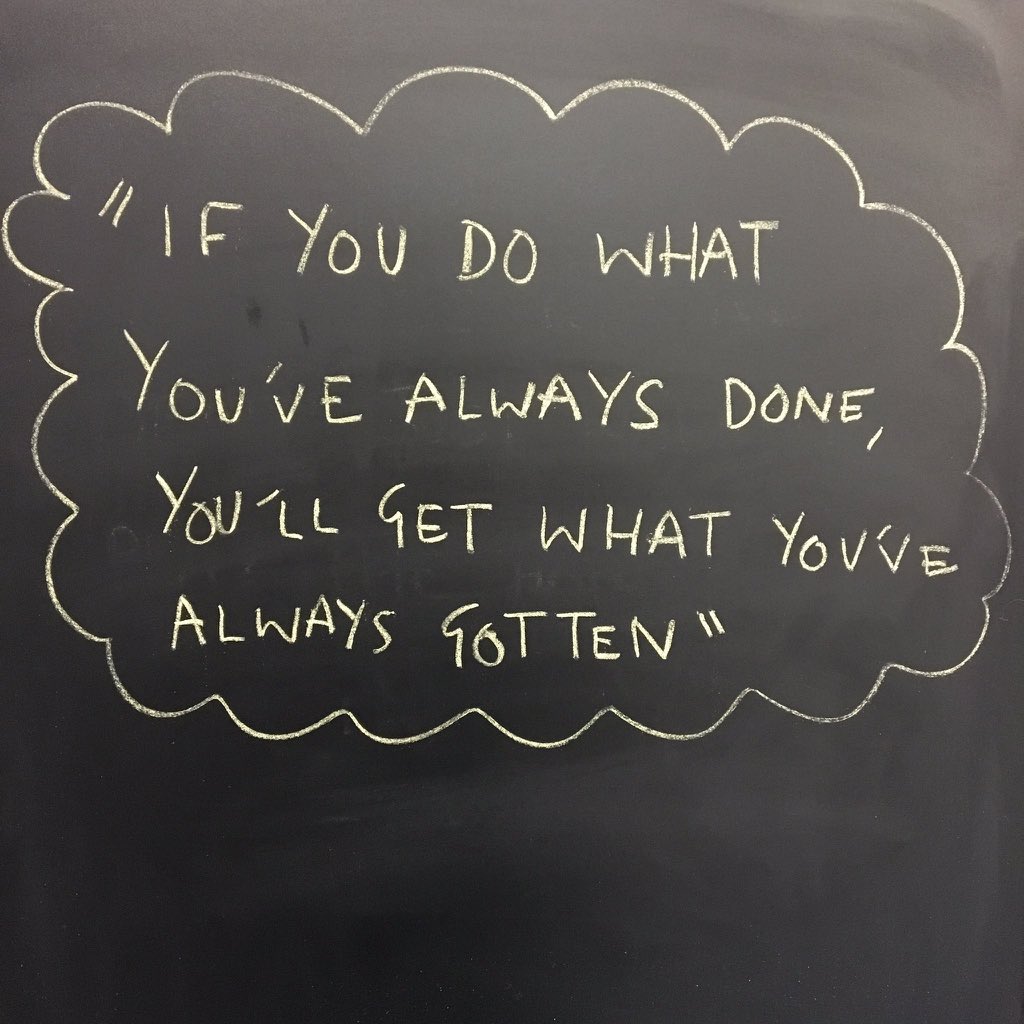 "IF YOU DO WHAT
YOU'VE ALWAYS DONE,
YOU'LL GET WHAT YOU'VE
ALWAYS GOTTEN"